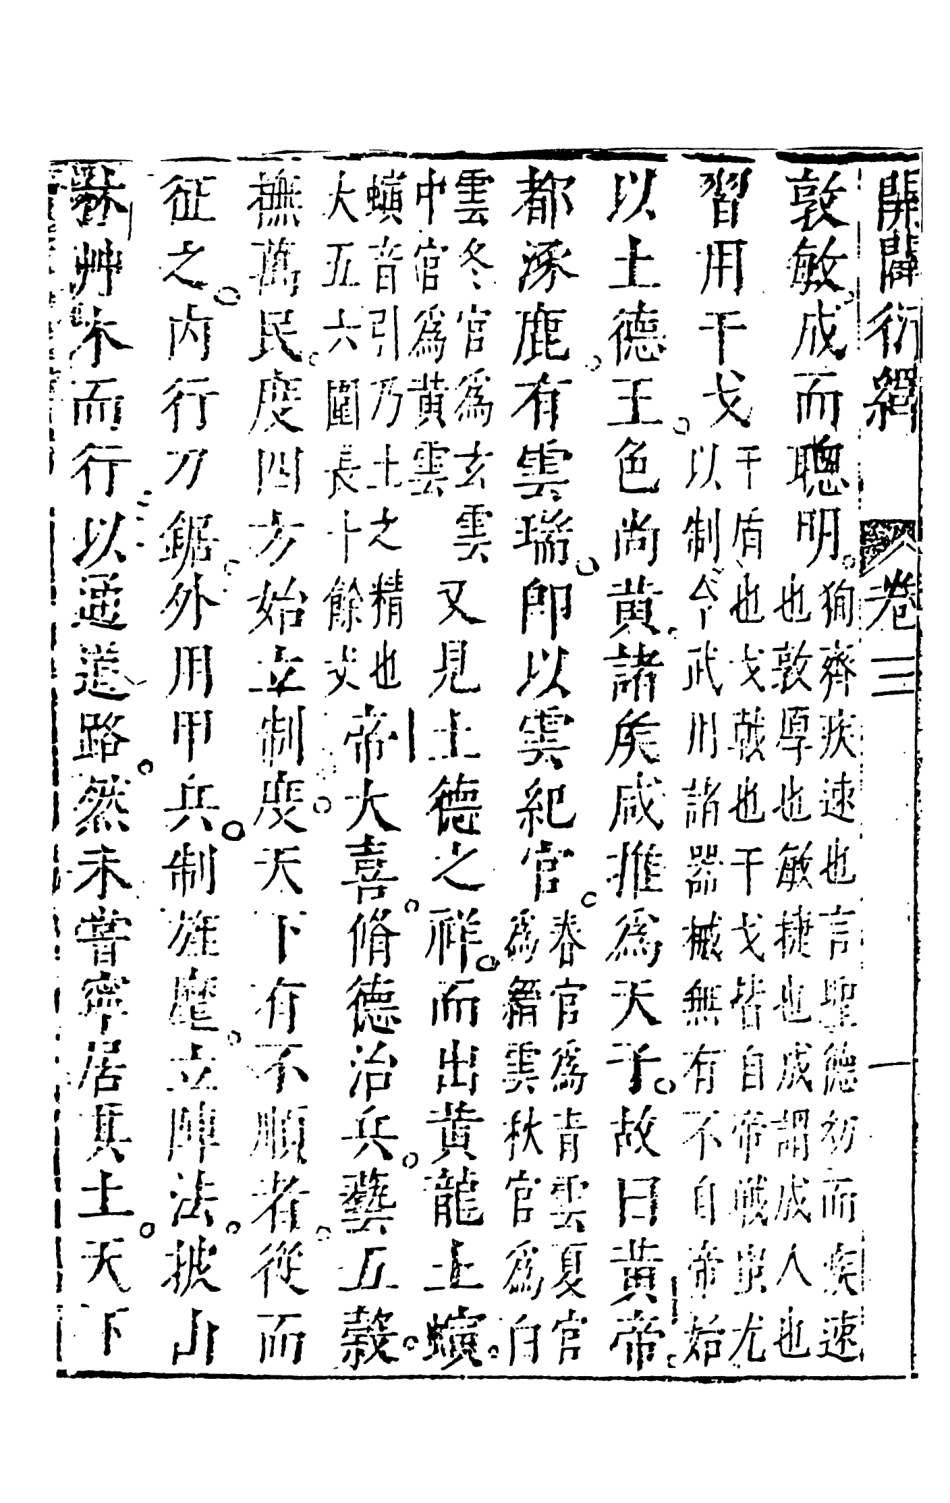 開闢衍繹 卷三 一
敦敏。成而聰明。狥齊疾速也言聖德幼而疾速也敦厚也敏捷也成謂成人也
習用干戈。干盾也戈戟也干戈皆自帝戰蚩尤以制今武用諸器械無有不自帝始
以土德王。色尚黃。諸矦咸推爲天子。故曰黃帝。
都涿鹿。有雲瑞。即以雲紀官。春官爲青雲夏官爲縉雲秋官爲白
雲冬官爲玄雲中官爲黃雲又見土德之祥。而出黃龍土螾。
螾音引乃土之精也大五六圍長十餘丈帝大喜。脩德治兵。藝五榖。
撫萬民。度四方始立制度。天下有不順者。從而
征之。內行刀鋸。外用甲兵。制旌麾。立陣法。披山
林艸木而行。以通道路。然未嘗寧居其土。天下